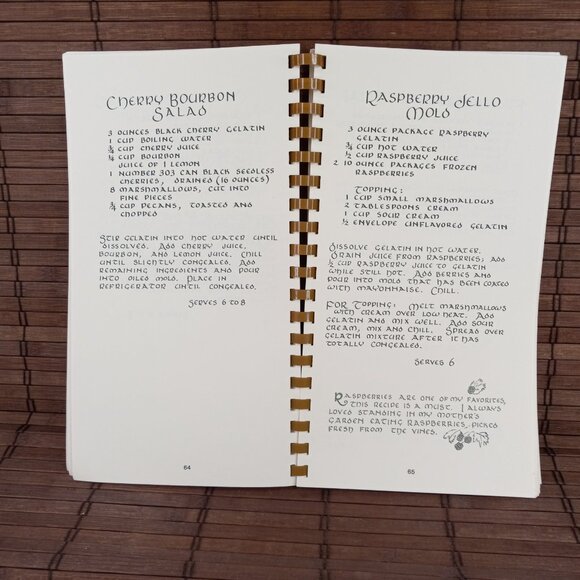 Cherry Bourbon
Salad
3 ounces black cherry gelatin
1 cup boiling water
¾ cup cherry juice
¼ cup bourbon
Juice of 1 lemon
1 number 303 can black seedless
cherries, drained (16 ounces)
8 marshmallows, cut into
fine pieces
¾ cup pecans, toasted and
chopped
Stir gelatin into hot water until
dissolved. Add cherry juice,
bourbon, and lemon juice. Chill
until slightly congealed. Add
remaining ingredients and pour
into oiled mold. Place in
refrigerator until congealed.
Serves 6 to 8
64
Raspberry Jello
Mold
3 ounce package raspberry
gelatin
¾ cup hot water
½ cup raspberry juice
2 10 ounce packages frozen
raspberries
Topping:
1 cup small marshmallows
2 tablespoons cream
1 cup sour cream
½ envelope unflavored gelatin
Dissolve gelatin in hot water.
Drain juice from raspberries; add
½ cup raspberry juice to gelatin
while still hot. Add berries and
pour into mold that has been coated
with mayonnaise. Chill.
For Topping: Melt marshmallows
with cream over low heat. Add
gelatin and mix well. Add sour
cream, mix and chill. Spread over
gelatin mixture after it has
totally congealed.
Serves 6
Raspberries are one of my favorites,
this recipe is a must. I always
loved standing in my mother's
garden eating raspberries, picked
fresh from the vines.
65